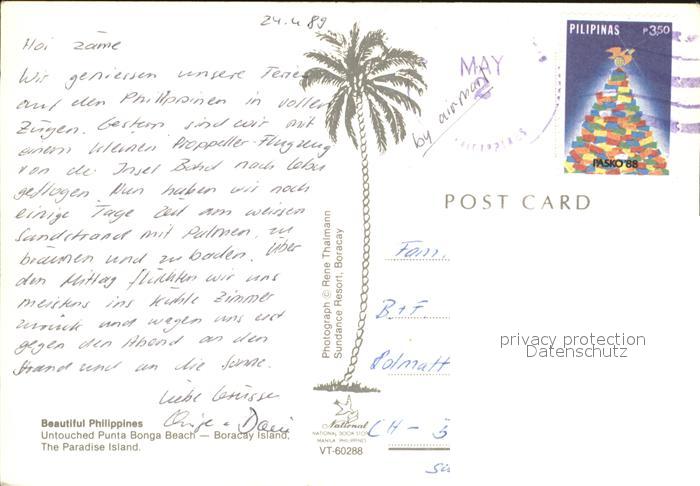 24.4.89
Hoi zäme
Wir geniessen unsere Ferien
auf den Philippinen in vollen
Zügen. Gestern sind wir mit
einem kleinen Propeller-Flugzeug
von der Insel Bohol nach Cebu
geflogen. Nun haben wir noch
einige Tage Zeit am weissen
Sandstrand mit Palmen, zu
bräunen und zu baden. Über
den Mittag flüchten wir uns
meistens ins kühle Zimmer
zurück und wagen uns erst
gegen den Abend an den
Strand und an die Sonne.
Liebe Grüsse
Beautiful Philippines
Untouched Punta Bonga Beach — Boracay Island,
The Paradise Island.
Photograph © Rene Thalmann
Sundance Resort, Boracay
National
NATIONAL BOOK STORE
MANILA PHILIPPINES
VT-60288
MAY
2
by airmail
PILIPINAS
P3,50
PASKO '88
POST CARD
Fam.
B+F.
CH - 5
privacy protection
Datenschutz